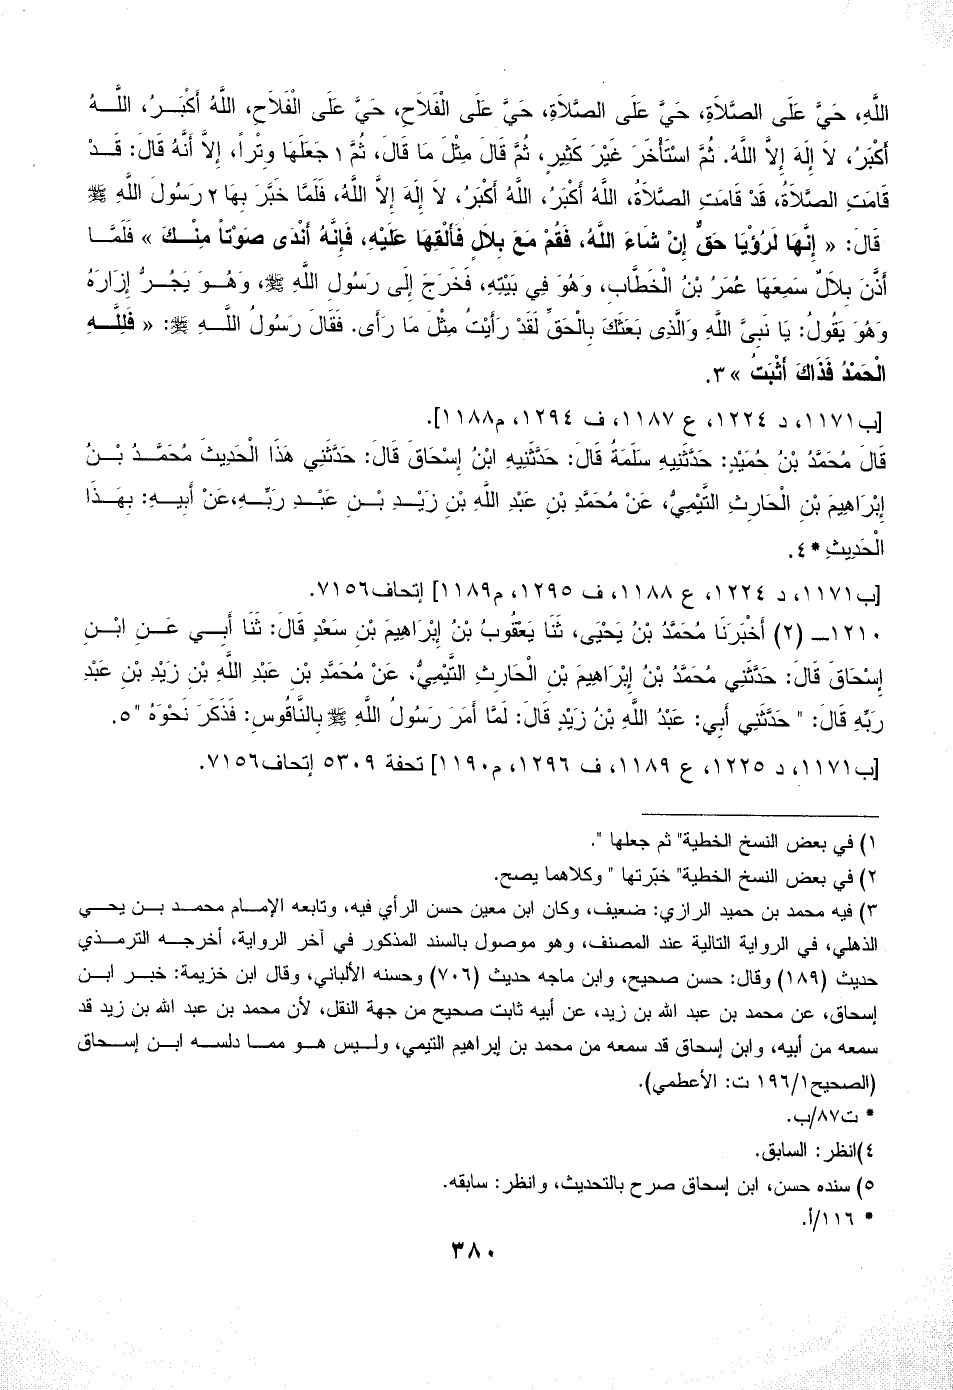 اللَّهِ، حَيَّ عَلَى الصَّلَاةِ، حَيَّ عَلَى الصَّلَاةِ، حَيَّ عَلَى الْفَلَاحِ، حَيَّ عَلَى الْفَلَاحِ، اللَّهُ أَكْبَرُ، اللَّهُ
أَكْبَرُ، لاَ إِلَهَ إِلاَّ اللَّهُ. ثُمَّ اسْتَأْخَرَ غَيْرَ كَثِيرٍ، ثُمَّ قَالَ مِثْلَ مَا قَالَ، ثُمَّ ١ جَعَلَهَا وِتْراً، إِلاَّ أَنَّهُ قَالَ: قَدْ
قَامَتِ الصَّلاَةُ، قَدْ قَامَتِ الصَّلاَةُ، اللَّهُ أَكْبَرُ، اللَّهُ أَكْبَرُ، لاَ إِلَهَ إِلاَّ اللَّهُ، فَلَمَّا خَبَّرَ بِهَا ٢ رَسُولَ اللَّهِ ﷺ
قَالَ: « إِنَّهَا لَرُؤْيَا حَقٌّ إِنْ شَاءَ اللَّهُ، فَقُمْ مَعَ بِلاَلٍ فَأَلْقِهَا عَلَيْهِ، فَإِنَّهُ أَنْدَى صَوْتاً مِنْكَ » فَلَمَّا
أَذَّنَ بِلاَلٌ سَمِعَهَا عُمَرُ بْنُ الْخَطَّابِ، وَهُوَ فِي بَيْتِهِ، فَخَرَجَ إِلَى رَسُولِ اللَّهِ ﷺ، وَهُوَ يَجُرُّ إِزَارَهُ
وَهُوَ يَقُولُ: يَا نَبِيَّ اللَّهِ وَالَّذِى بَعَثَكَ بِالْحَقِّ لَقَدْ رَأَيْتُ مِثْلَ مَا رَأَى. فَقَالَ رَسُولُ اللَّهِ ﷺ: « فَلِلَّهِ
الْحَمْدُ فَذَاكَ أَثْبَتُ »٣.
[ب١١٧١، د ١٢٢٤، ع ١١٨٧، ف ١٢٩٤، م١١٨٨].
قَالَ مُحَمَّدُ بْنُ حُمَيْدٍ: حَدَّثَنِيهِ سَلَمَةُ قَالَ: حَدَّثَنِيهِ ابْنُ إِسْحَاقَ قَالَ: حَدَّثَنِي هَذَا الْحَدِيثَ مُحَمَّدُ بْنُ
إِبْرَاهِيمَ بْنِ الْحَارِثِ التَّيْمِيُّ، عَنْ مُحَمَّدِ بْنِ عَبْدِ اللَّهِ بْنِ زَيْدِ بْنِ عَبْدِ رَبِّهِ،عَنْ أَبِيهِ: بِهَذَا
الْحَدِيثِ *٤.
[ب١١٧١، د ١٢٢٤، ع ١١٨٨، ف ١٢٩٥، م١١٨٩] إتحاف٧١٥٦.
١٢١٠ــ (٢) أَخْبَرَنَا مُحَمَّدُ بْنُ يَحْيَى، ثَنَا يَعْقُوبُ بْنُ إِبْرَاهِيمَ بْنِ سَعْدٍ قَالَ: ثَنَا أَبِي عَنِ ابْنِ
إِسْحَاقَ قَالَ: حَدَّثَنِي مُحَمَّدُ بْنُ إِبْرَاهِيمَ بْنِ الْحَارِثِ التَّيْمِيُّ، عَنْ مُحَمَّدِ بْنِ عَبْدِ اللَّهِ بْنِ زَيْدِ بْنِ عَبْدِ
رَبِّهِ قَالَ: " حَدَّثَنِي أَبِي: عَبْدُ اللَّهِ بْنُ زَيْدٍ قَالَ: لَمَّا أَمَرَ رَسُولُ اللَّهِ ﷺ بِالنَّاقُوسِ: فَذَكَرَ نَحْوَهُ "٥.
[ب١١٧١، د ١٢٢٥، ع ١١٨٩، ف ١٢٩٦، م١١٩٠] تحفة ٥٣٠٩ إتحاف٧١٥٦.
١) في بعض النسخ الخطية" ثم جعلها ".
٢) في بعض النسخ الخطية" خبّرتها " وكلاهما يصح.
٣) فيه محمد بن حميد الرازي: ضعيف، وكان ابن معين حسن الرأي فيه، وتابعه الإمام محمد بن يحي
الذهلي، في الرواية التالية عند المصنف، وهو موصول بالسند المذكور في آخر الرواية، أخرجه الترمذي
حديث (١٨٩) وقال: حسن صحيح، وابن ماجه حديث (٧٠٦) وحسنه الألباني، وقال ابن خزيمة: خبر ابن
إسحاق، عن محمد بن عبد الله بن زيد، عن أبيه ثابت صحيح من جهة النقل، لأن محمد بن عبد الله بن زيد قد
سمعه من أبيه، وابن إسحاق قد سمعه من محمد بن إبراهيم التيمي، وليس هو مما دلسه ابن إسحاق
(الصحيح١٩٦/١ ت: الأعظمي).
* ت٨٧/ب.
٤)انظر: السابق.
٥) سنده حسن، ابن إسحاق صرح بالتحديث، وانظر: سابقه.
* ١١٦/أ.
٣٨٠